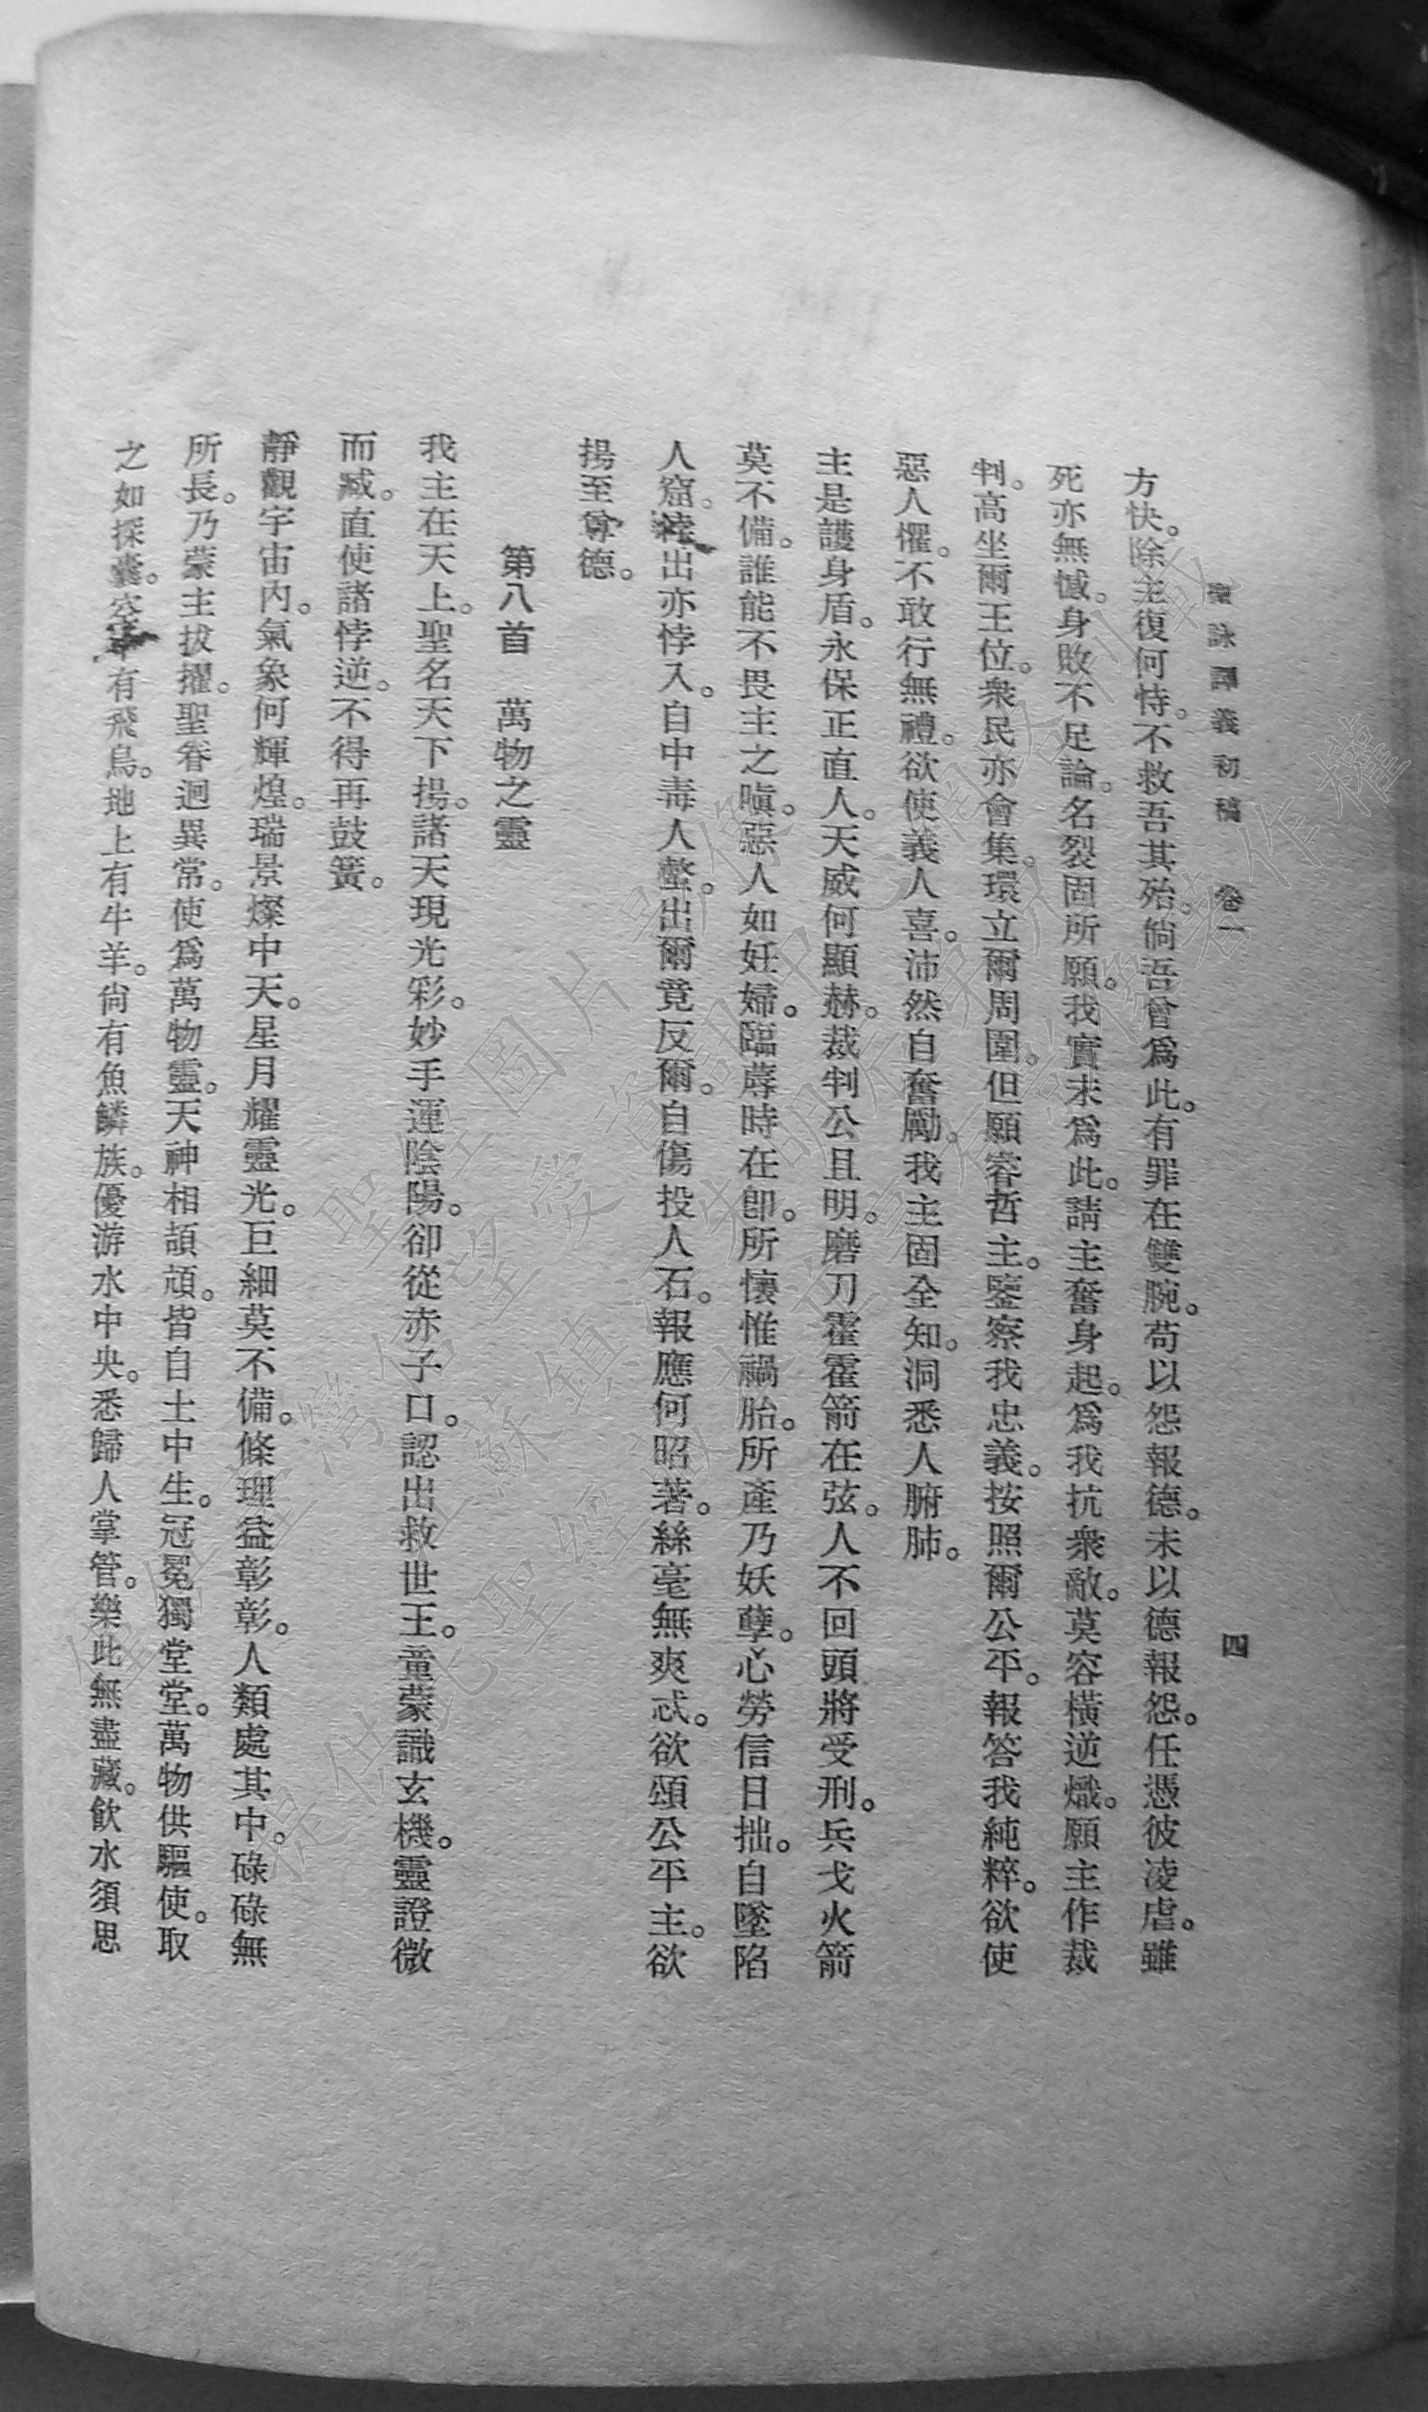 聖詠譯義初稿 卷一 四
方快。除主復何恃。不救吾其殆。倘吾曾爲此。有罪在雙腕。苟以怨報德。未以德報怨。任憑彼凌虐。雖
死亦無憾。身敗不足論。名裂固所願。我實未爲此。請主奮身起。爲我抗衆敵。莫容橫逆熾。願主作裁
判。高坐爾王位。衆民亦會集。環立爾周圍。但願睿哲主。鑒察我忠義。按照爾公平。報答我純粹。欲使
惡人懼。不敢行無禮。欲使義人喜。沛然自奮勵。我主固全知。洞悉人腑肺。
主是護身盾。永保正直人。天威何顯赫。裁判公且明。磨刀霍霍箭在弦。人不回頭將受刑。兵戈火箭
莫不備。誰能不畏主之嗔。惡人如妊婦。臨蓐時在卽。所懷惟禍胎。所產乃妖孽。心勞信日拙。自墜陷
人窟。悖出亦悖入。自中毒人螫。出爾竟反爾。自傷投人石。報應何昭著。絲毫無爽忒。欲頌公平主。欲
揚至尊德。
第八首 萬物之靈
我主在天上。聖名天下揚。諸天現光彩。妙手運陰陽。卻從赤子口。認出救世王。童蒙識玄機。靈證微
而臧。直使諸悖逆。不得再鼓簧。
靜觀宇宙內。氣象何輝煌。瑞景燦中天。星月耀靈光。巨細莫不備。條理益彰彰。人類處其中。碌碌無
所長。乃蒙主拔擢。聖眷迥異常。使爲萬物靈。天神相頡頏。皆自土中生。冠冕獨堂堂。萬物供驅使。取
之如探囊。空中有飛鳥。地上有牛羊。尙有魚鱗族。優游水中央。悉歸人掌管。樂此無盡藏。飮水須思